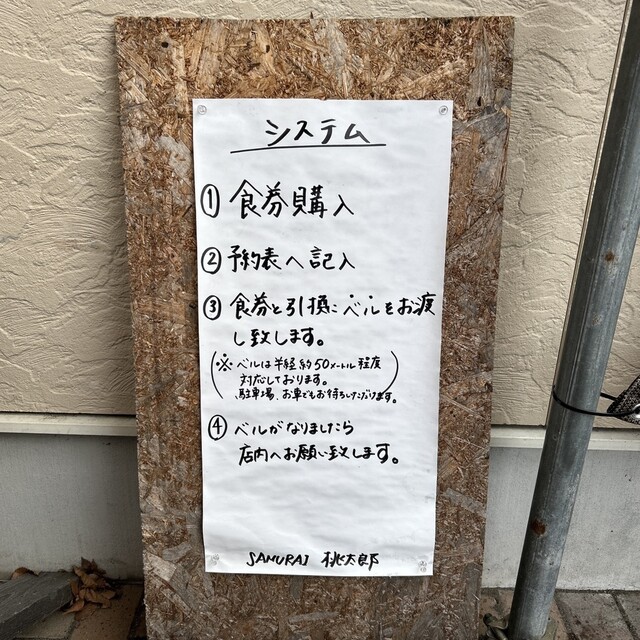 システム
① 食券購入
② 予約表へ記入
③ 食券と引換にベルをお渡
し致します。
(※ ベルは半経約50メートル程度
対応しております。
駐車場、お車でもお待ちいただけます。)
④ ベルがなりましたら
店内へお願い致します。
SAMURAI 桃太郎